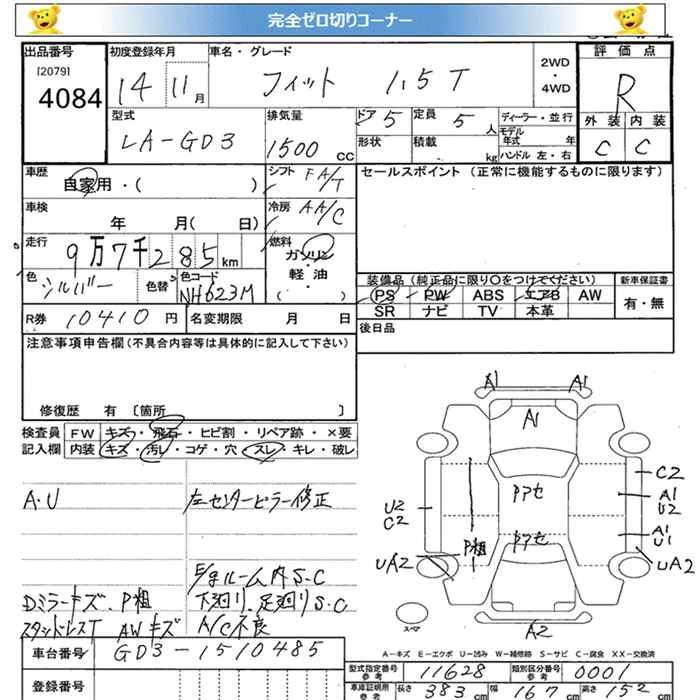 完全ゼロ切りコーナー
出品番号 初度登録年月 車名・グレード 2WD・4WD 評価点
[2079]
4084 14 11月 フィット 1.5T R
型式 排気量 ドア 定員 ディーラー・並行 外装 内装
LA-GD3 1500CC 5 5人 モデル年式 年 C C
形状 積載 kg ハンドル 左・右
車歴 シフト FA/T セールスポイント (正常に機能するものに限ります)
自家用・( )
車検 冷房 AA/C
年 月( 日)
走行 燃料
9万7千285km ガソリン
色 色替 色コード 軽油
シルバー NH623M ( ) 装備品 (純正品に限り○をつけてください) 新車保証書
PS PW ABS エアB AW 有・無
R券 10410円 名変期限 月 日 SR ナビ TV 本革
注意事項申告欄 (不具合内容等は具体的に記入して下さい) 後日品
修復歴 有 〔箇所 〕
検査員 FW キズ・飛石・ヒビ割・リペア跡・×要
記入欄 内装 キズ・汚レ・コゲ・穴・スレ・キレ・破レ
A1 A1
A1
A・U 左センターピラー修正
C2
U2 アアセ A1
C2 U2
A1
P粗 アアセ U1
UA2 UA2
E/gルーム内 S・C
Dミラーキズ、P粗 下廻り、足廻り S・C
スタッドレスT AWキズ A/C不良
スペア A2
A-キズ E-エクボ U-凹み W-補修跡 S-サビ C-腐食 XX-交換済
車台番号 GD3-1510485
型式指定番号 参考 11628 類別区分番号 参考 0001
登録番号
車庫証明用 参考 長さ 383cm 幅 167cm 高さ 152cm